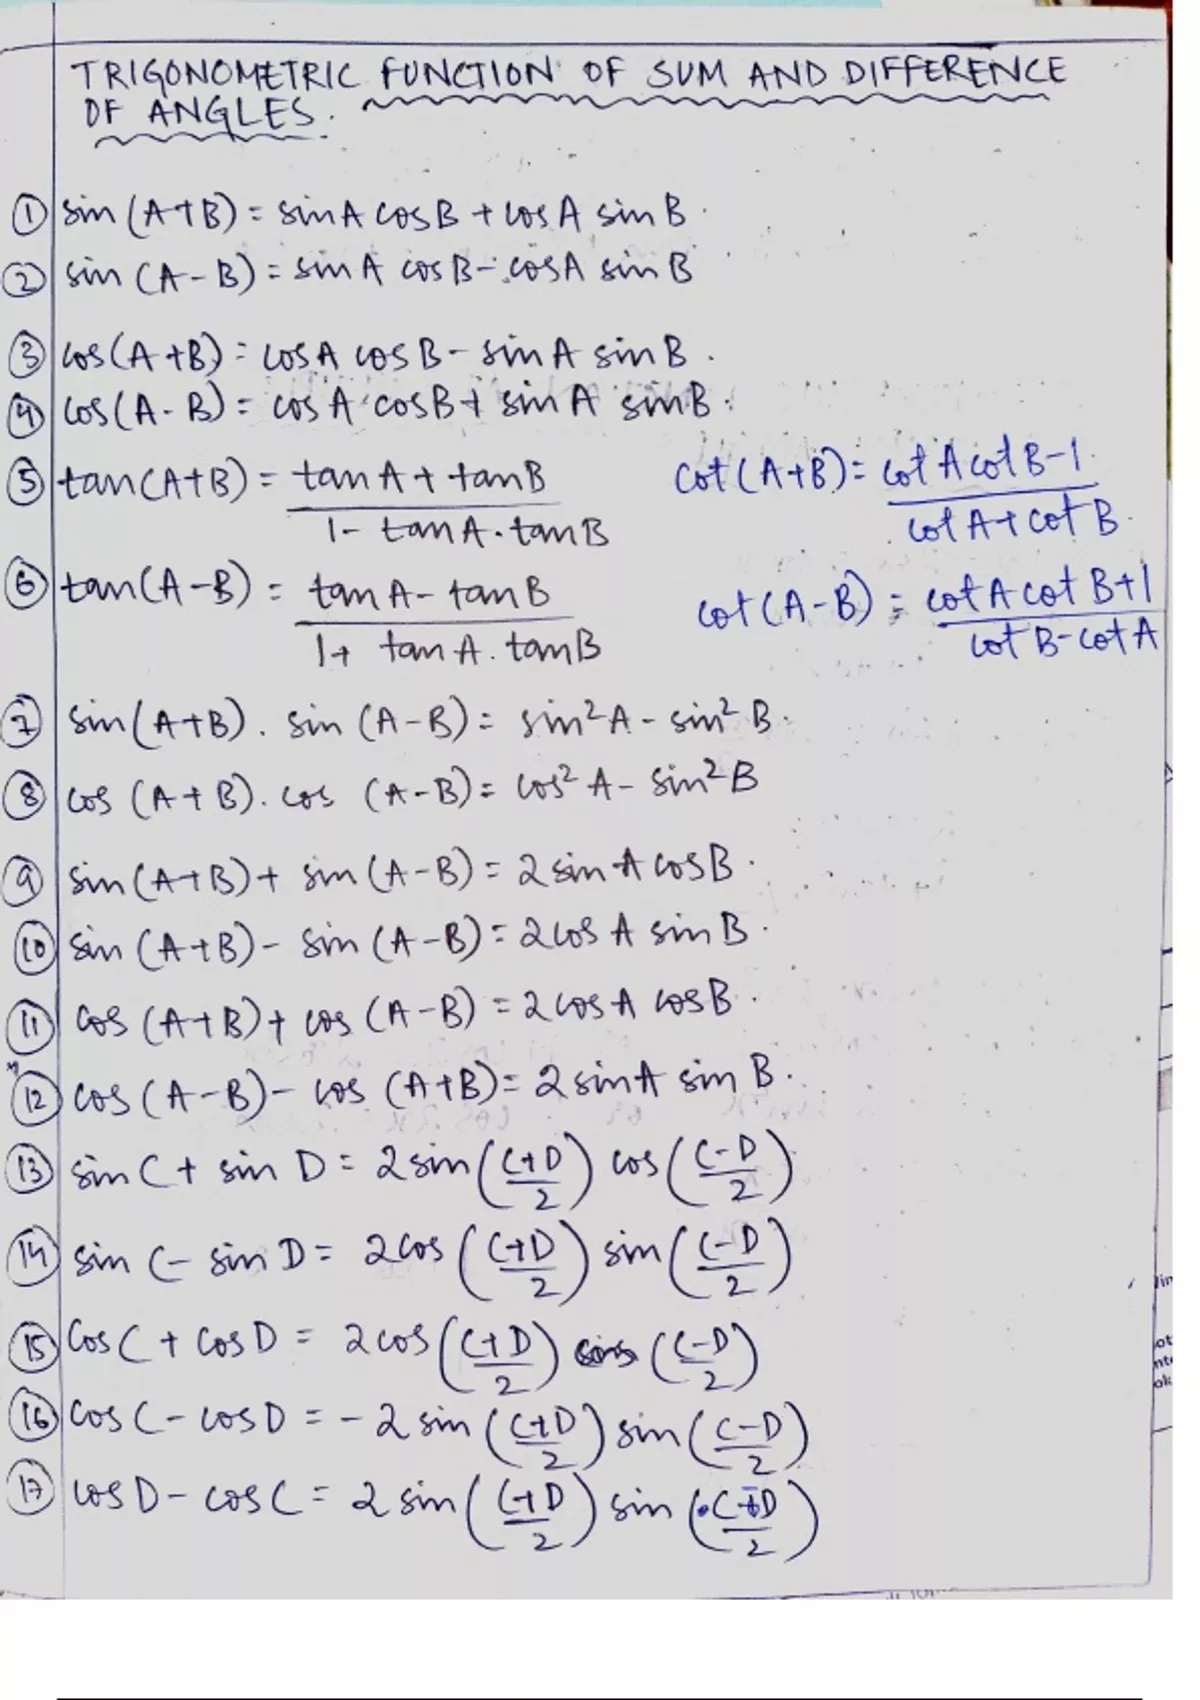 TRIGONOMETRIC FUNCTION OF SUM AND DIFFERENCE
OF ANGLES.
① sin(A+B) = sinA cosB + cosA sinB.
② sin(A-B) = sinA cosB - cosA sinB
③ cos(A+B) = cosA cosB - sinA sinB.
④ cos(A-B) = cosA cosB + sinA sinB.
⑤ tan(A+B) = tanA + tanB cot(A+B) = cotA cotB-1
1- tanA.tanB cotA + cotB.
⑥ tan(A-B) = tanA - tanB cot(A-B) = cotA cotB+1
1+ tanA.tanB cotB-cotA
⑦ sin(A+B). sin(A-B) = sin²A - sin²B.
⑧ cos(A+B). cos(A-B) = cos²A - sin²B
⑨ sin(A+B) + sin(A-B) = 2sinA cosB.
⑩ sin(A+B) - sin(A-B) = 2cosA sinB.
⑪ cos(A+B) + cos(A-B) = 2cosA cosB.
⑫ cos(A-B) - cos(A+B) = 2sinA sinB.
⑬ sinC + sinD = 2sin((C+D)/2) cos((C-D)/2)
⑭ sinC - sinD = 2cos((C+D)/2) sin((C-D)/2)
⑮ cosC + cosD = 2cos((C+D)/2) cos((C-D)/2)
⑯ cosC - cosD = -2sin((C+D)/2) sin((C-D)/2)
⑰ cosD - cosC = 2sin((C+D)/2) sin((C-D)/2)